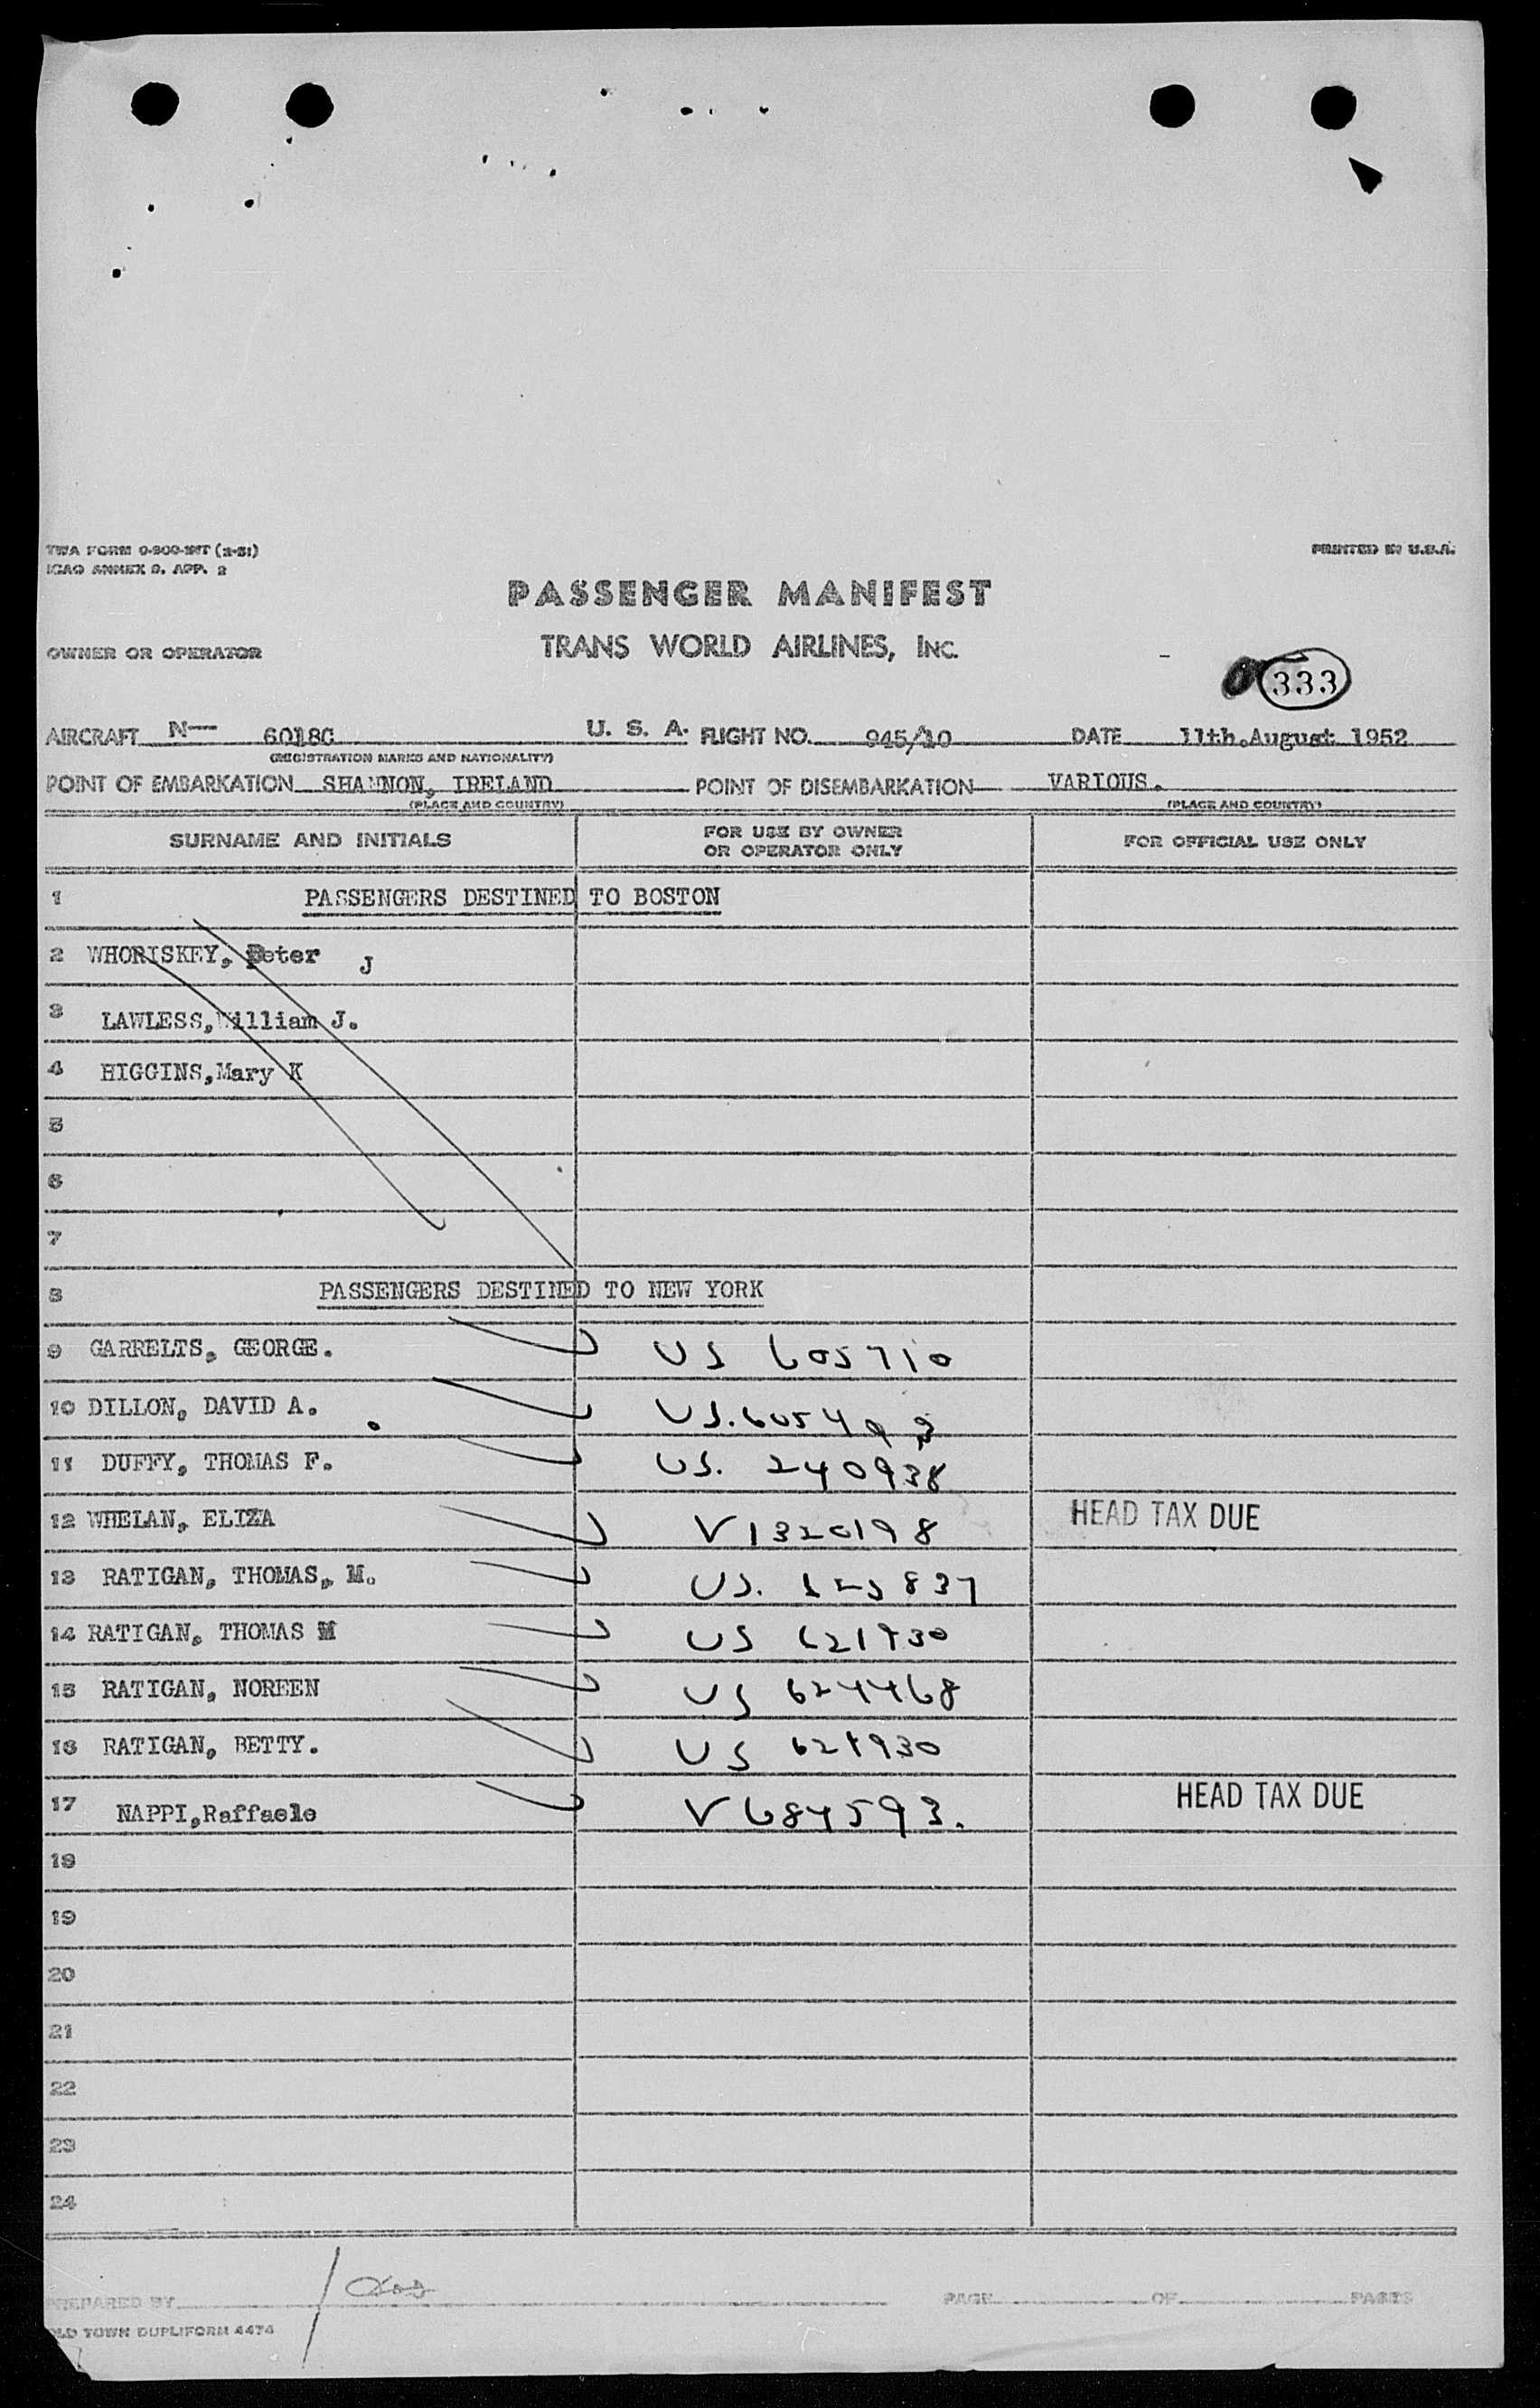 TWA FORM 0-900-INT (2-51)
PRINTED IN U.S.A.
ICAO ANNEX 9. APP. 2
PASSENGER MANIFEST
OWNER OR OPERATOR
TRANS WORLD AIRLINES, INC.
333
AIRCRAFT N— 6018C U. S. A. FLIGHT NO. 945/10 DATE 11th.August 1952
(REGISTRATION MARKS AND NATIONALITY)
POINT OF EMBARKATION SHANNON, IRELAND POINT OF DISEMBARKATION VARIOUS.
(PLACE AND COUNTRY) (PLACE AND COUNTRY)
SURNAME AND INITIALS FOR USE BY OWNER OR OPERATOR ONLY FOR OFFICIAL USE ONLY
1 PASSENGERS DESTINED TO BOSTON
2 WHORISKEY, Peter J
3 LAWLESS,William J.
4 HIGGINS,Mary K
5
6
7
8 PASSENGERS DESTINED TO NEW YORK
9 GARRELTS, GEORGE. US 605710
10 DILLON, DAVID A. US.605493
11 DUFFY, THOMAS F. US. 240938
12 WHELAN, ELIZA V1320198 HEAD TAX DUE
13 RATIGAN, THOMAS, M. US.
14 RATIGAN, THOMAS M US
15 RATIGAN, NOREEN US 624468
16 RATIGAN, BETTY. US
17 NAPPI,Raffaele V684593. HEAD TAX DUE
18
19
20
21
22
23
24
PREPARED BY PAGE OF PAGES
OLD TOWN DUPLIFORM 4474